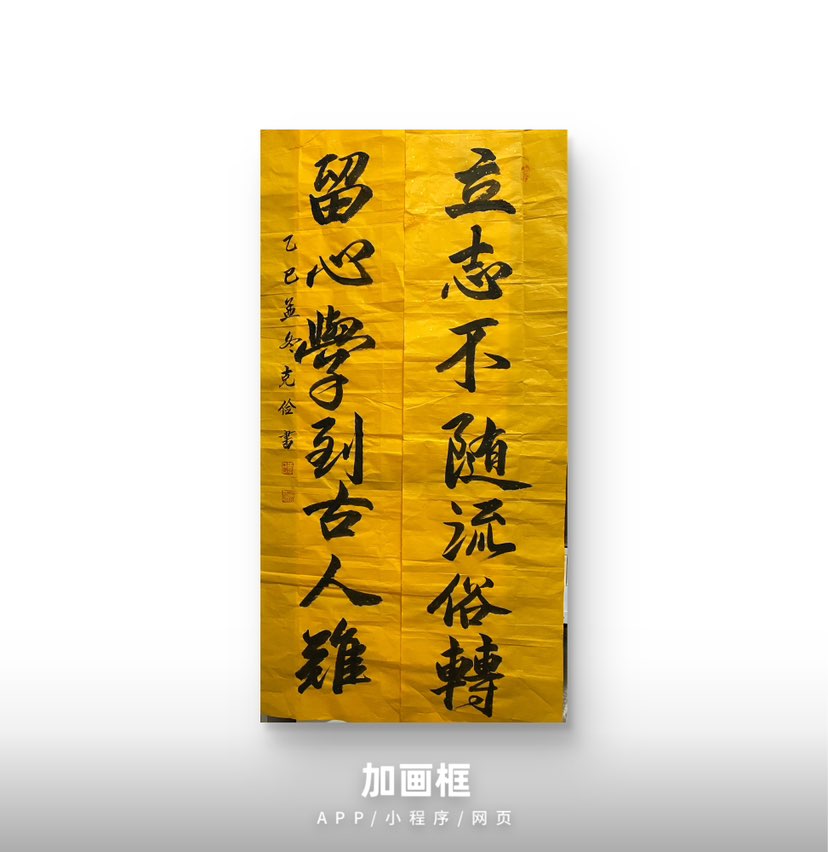 立志不随流俗轉
留心學到古人難
乙巳孟冬克俭書
加画框
APP/小程序/网页